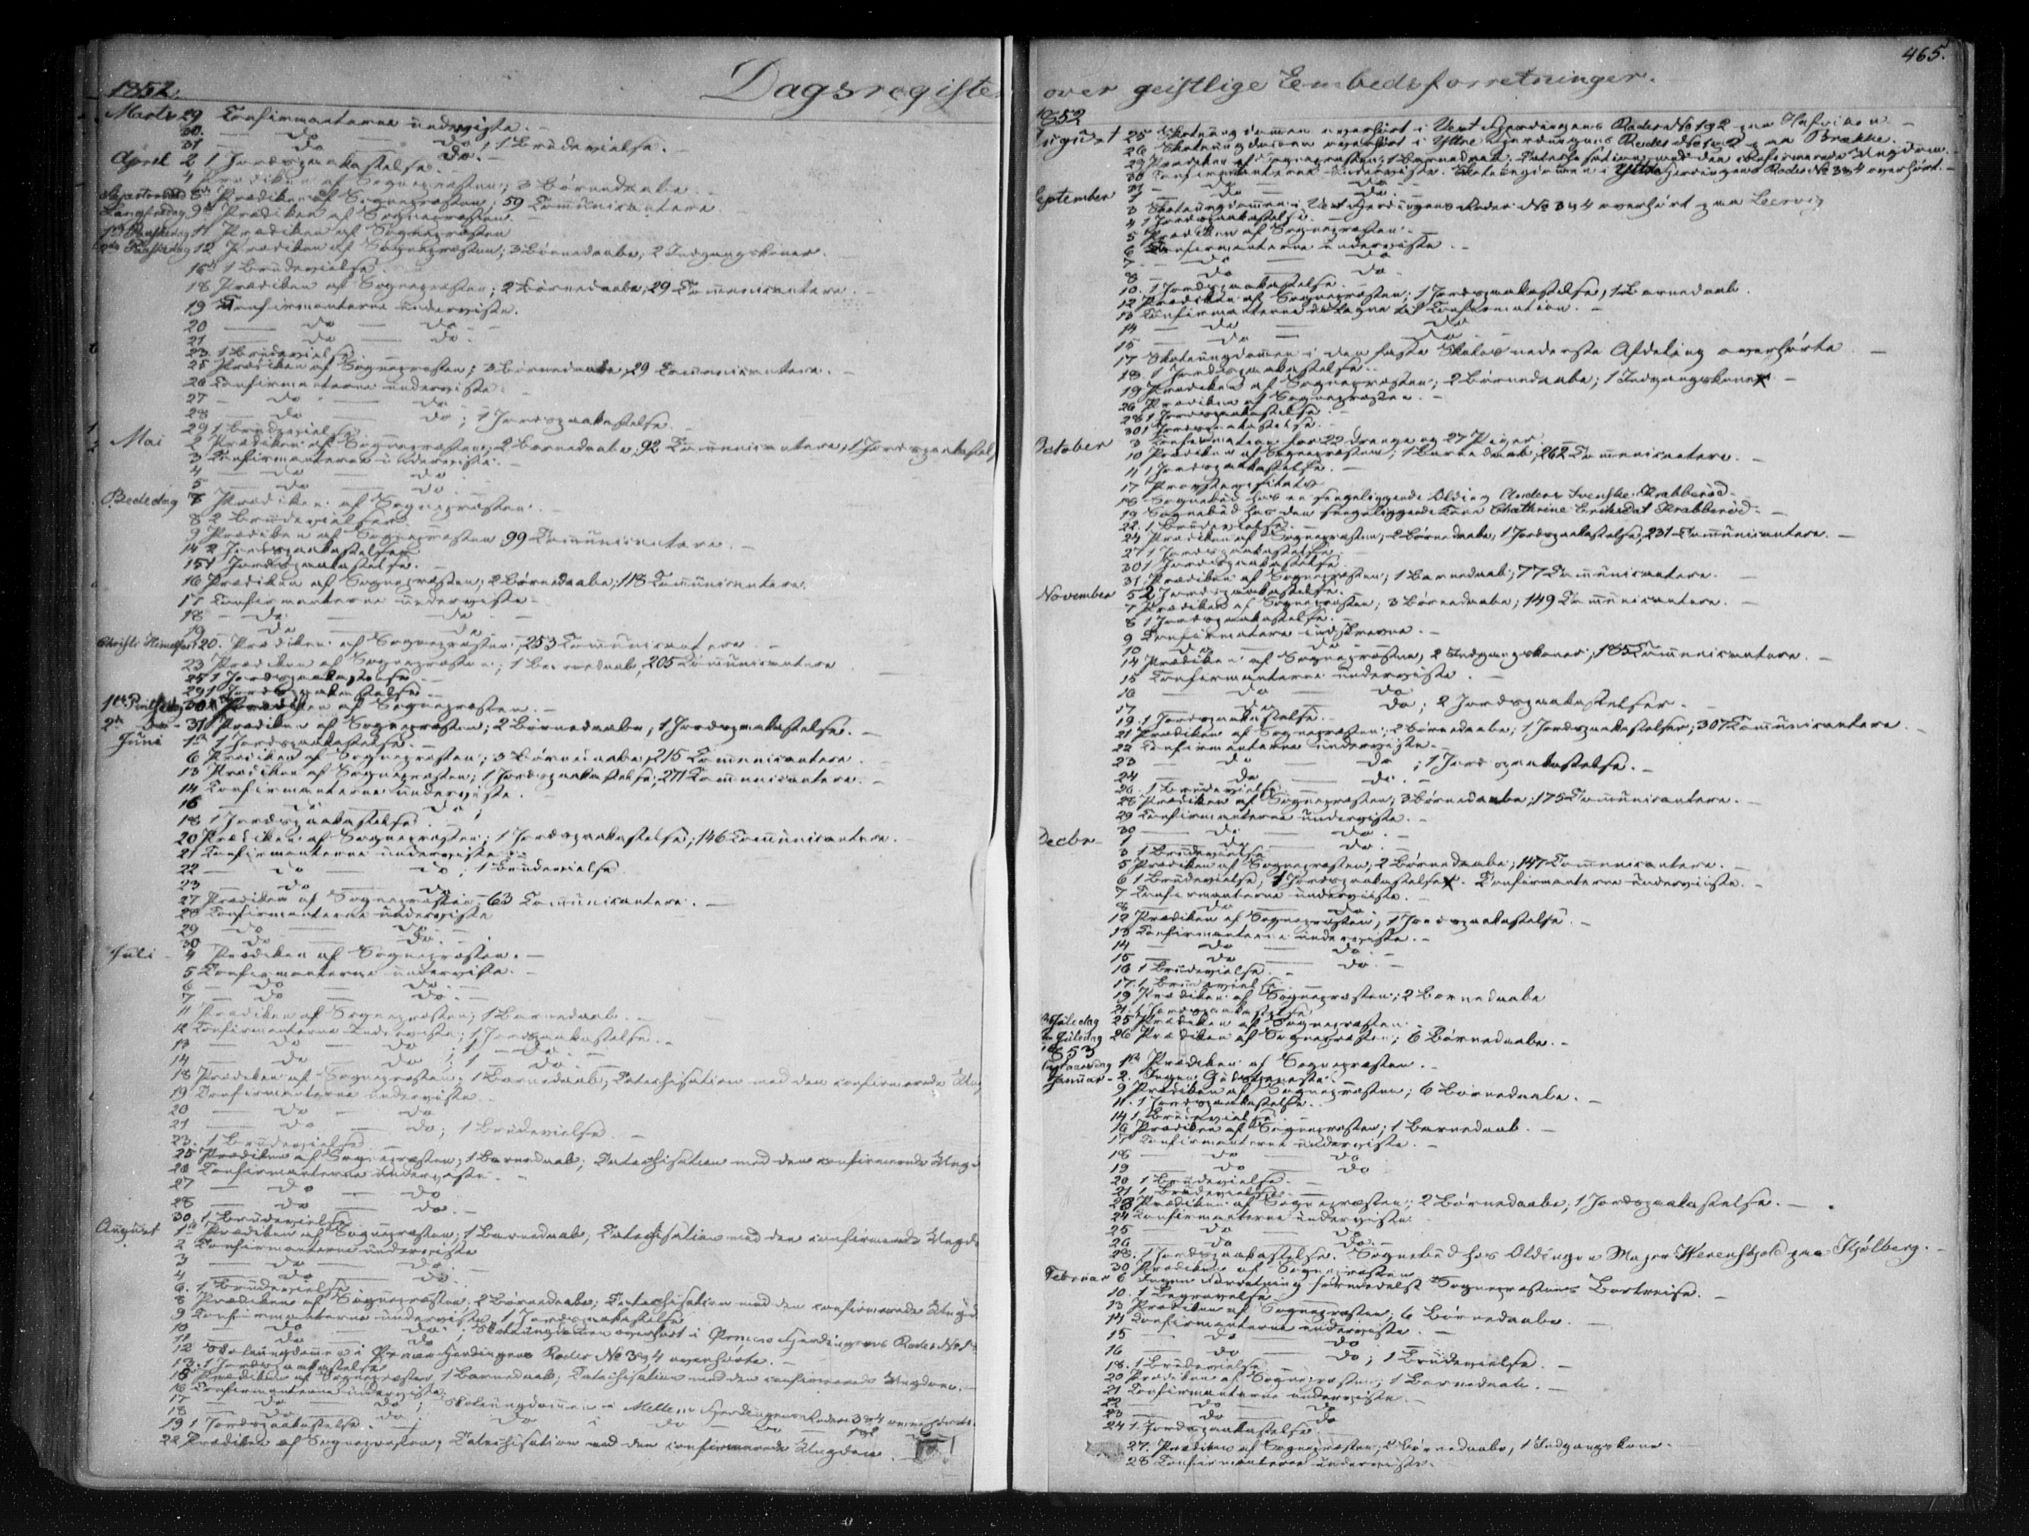 1852. Dagsregister
Marts 29 Confirmanterne underviste. —
30. — do — do
31 — do — do; 1 Brudevielse. —
April 2 1 Jordspaakastelse. —
4 Prædiken af Sognepræsten; 3 Børnedaabe. —
Skjærtorsdag 8 Prædiken af Sognepræsten; 59 Communicantere —
Langfredag 9 Prædiken af Sognepræsten. —
1ste Paaskedag 11 Prædiken af Sognepræsten
2den Paaskedag 12 Prædiken af Sognepræsten; 3 Børnedaabe; 2 Indgangskoner. —
16 1 Brudevielse.
18 Prædiken af Sognepræsten; 2 Børnedaabe; 29 Communicantere. —
19 Confirmanterne underviste.
20 — do — do —
21 — do — do. —
23. 1 Brudevielse. —
25 Prædiken af Sognepræsten; 3 Børnedaabe; 29 Communicantere. —
26 Confirmanterne underviste.
27 — do — do
28 — do — do; 1 Jordspaakastelse. —
29 1 Brudevielse
Mai 2 Prædiken af Sognepræsten; 2 Børnedaabe; 92 Communicantere; 1 Jordspaakastelse
3 Confirmanterne underviste. —
4 — do — do. —
5 — do — do. —
Bededag 7 Prædiken af Sognepræsten. —
8 2 Brudevielser
9 Prædiken af Sognepræsten 99 Communicantere. —
14 2 Jordspaakastelser
15 1 Jordspaakastelse. —
16 Prædiken af Sognepræsten; 2 Børnedaabe; 113 Communicantere.
17 Confirmanterne underviste —
18 — do — do —
19 — do — do —
Christi Himmelfart 20. Prædiken af Sognepræsten; 253 Communicantere —
23 Prædiken af Sognepræsten; 1 Barnedaab; 205 Communicantere —
25 1 Jordspaakastelse —
29 1 Jordspaakastelse —
1ste Pintsedag 30 Prædiken af Sognepræsten. —
2den do — 31 Prædiken af Sognepræsten; 2 Børnedaabe; 1 Jordspaakastelse. —
Juni 1ste 1 Jordspaakastelse. —
6 Prædiken af Sognepræsten; 3 Børnedaabe; 215 Communicantere. —
13 Prædiken af Sognepræsten; 1 Jordspaakastelse; 211 Communicantere. —
14 Confirmanterne underviste. —
16 — do — do
18 1 Jordspaakastelse.
20 Prædiken af Sognepræsten; 1 Jordspaakastelse; 146 Communicantere.
21 Confirmanterne underviste
22 — do — do; 1 Brudevielse
23 — do — do
27 Prædiken af Sognepræsten — 63 Communicantere. —
28 Confirmanterne underviste
29 — do — do. —
30 — do — do. —
Juli 4 Prædiken af Sognepræsten. —
5 Confirmanterne underviste. —
6 — do — do. —
7 — do — do. —
11 Prædiken af Sognepræsten; 1 Barnedaab. —
12 Confirmanterne underviste; 1 Jordspaakastelse. —
13 — do — do; 1 — do. —
14 — do — do; 1 — do. —
18 Prædiken af Sognepræsten; 1 Barnedaab; Catechisation med den confirmerede Ung
19 Confirmanterne underviste.
20 — do — do
21 — do — do; 1 Brudevielse. —
23. 1 Brudevielse. —
25 Prædiken af Sognepræsten; 1 Barnedaab; Catechisation med den confirmerede Ungd
26 Confirmanterne underviste. —
27 — do — do
28 — do — do. —
30. 1 Brudevielse
August 1ste Prædiken af Sognepræsten; 1 Barnedaab; Catechisation med den confirmerede Ungdo
2 Confirmanterne underviste
3 — do — do.
4 — do — do. —
6. 1 Brudevielse
8 Prædiken af Sognepræsten. 2 Børnedaabe; Catechisation med den confirmerede Ungd
9 Confirmanterne underviste; 1 Jordspaakastelse
10 — do — do; Skoleungdommen overhørt i Fjerdingens Roder No 1
11 — do — do
12 Skoleungdommen i Fjerdingens Roder No 3 & 4 overhørte. —
13. 1 Jordspaakastelse
15 Prædiken af Sognepræsten, 1 Barnedaab; Catechisation med den confirmerede Ungdom. —
16 Confirmanterne underviste
17 — do — do; Skoleungdommen i Mellem Fjerdingens Roder 3 & 4
18 — do — do; do i do
19 1 Jordspaakastelse.
22 Prædiken af Sognepræsten; Catechisation med den confirmerede Ungdom.
465.
over geistlige Embedsforretninger.
1852
August 25 Skoleungdommen overhørt i Vest Fjerdingens Roder No 1 & 2 paa
26 Skoleungdommen overhørt i Yttre Fjerdingens Roder No 1 & 2 paa Brække.
29 Prædiken af Sognepræsten; 1 Barnedaab; Catechisation med den confirmerede Ungdom.
30 Confirmanterne underviste. Skoleungdommen i Yttre Fjerdingens Roder No 3 & 4 overhørt. —
31 — do — do —
September 1 — do — do —
3 Skoleungdommen i Vest Fjerdingens Roder No 3 & 4 overhørt paa Leervig
4 1 Jordspaakastelse. —
5 Prædiken af Sognepræsten. —
6 Confirmanterne underviste. —
7 — do — do
8 — do — do.
10. 1 Jordspaakastelse. —
12 Prædiken af Sognepræsten; 1 Jordspaakastelse, 1 Barnedaab.
13 Confirmanterne til Confirmation. —
14 — do — do
15 — do — do. —
17 Skoleungdommen i den faste Skoles nederste Afdeling overhørte —
18. 1 Jordspaakastelse. —
19 Prædiken af Sognepræsten; 2 Børnedaabe; 1 Indgangskone —
26 Prædiken af Sognepræsten. —
28 1 Jordspaakastelse. —
30 1 Jordspaakastelse. —
October 3 Confirmation for 22 Drenge og 27 Piger. —
10 Prædiken af Sognepræsten; 1 Barnedaab; 262 Communicantere. —
11 1 Jordspaakastelse. —
17 Provstevisitats
18 Sognebud hos en sengeliggende Olding Anders Svenske Krabberød. —
19 Sognebud hos den sengeliggende Kone Chathrine Krabberød. —
22. 1 Brudevielse. —
24 Prædiken af Sognepræsten; 2 Børnedaabe, 1 Jordspaakastelse; 231 Communicantere. —
27 1 Jordspaakastelse. —
30 1 Jordspaakastelse.
31 Prædiken af Sognepræsten; 1 Barnedaab; 77 Communicantere. —
November 5 2 Jordspaakastelse.
7 Prædiken af Sognepræsten; 3 Børnedaabe; 149 Communicantere. —
8 1 Jordspaakastelse. —
9 Confirmantere indskrevne. —
10 — do — do —
14 Prædiken af Sognepræsten; 2 Indgangskoner; 185 Communicantere. —
15 Confirmanterne underviste. —
16 — do — do
17 — do — do; 2 Jordspaakastelser. —
19. 1 Jordspaakastelse. —
21 Prædiken af Sognepræsten; 2 Børnedaabe; 1 Jordspaakastelse; 307 Communicantere. —
22 Confirmanterne underviste. —
23 — do — do; 1 Jordspaakastelse. —
24 — do — do. —
26. 1 Brudevielse
28 Prædiken af Sognepræsten; 3 Børnedaabe; 175 Communicantere. —
29 Confirmanterne underviste. —
30 — do — do. —
Decbr. 1 — do — do. —
3 1 Brudevielse
5 Prædiken af Sognepræsten; 2 Børnedaabe; 147 Communicantere. —
6 1 Brudevielse; 1 Jordspaakastelse. Confirmanterne underviste. —
7 Confirmanterne underviste. —
8 — do — do. —
12 Prædiken af Sognepræsten; 1 Jordspaakastelse. —
13 Confirmanterne underviste. —
14 — do — do. —
15 — do — do. —
16 1 Brudevielse. —
17. 1 Brudevielse. —
19 Prædiken af Sognepræsten; 2 Børnedaabe
21. 1 Jordspaakastelse
Juledag 25 Prædiken af Sognepræsten.
Juledag 26 Prædiken af Sognepræsten; 6 Børnedaabe. —
1853
Nytaarsdag 1ste Prædiken af Sognepræsten. —
Januar 2. Ingen Gudstjeneste. —
9 Prædiken af Sognepræsten; 6 Børnedaabe. —
11. 1 Jordspaakastelse. —
14 1 Brudevielse. —
16 Prædiken af Sognepræsten; 1 Barnedaab. —
17 Confirmanterne underviste. —
18 — do — do
19 — do — do
20 1 Brudevielse. —
21 1 Brudevielse. —
23 Prædiken af Sognepræsten; 2 Børnedaabe, 1 Jordspaakastelse. —
24 Confirmanterne underviste.
25 — do — do
26 — do — do. —
28. 1 Jordspaakastelse. Sognebud hos Oldingen Major Werenskjold paa Kjølberg. —
30 Prædiken af Sognepræsten
Februar 6 Ingen Forretning formedelst Sognepræstens Bortreise. —
10. 1 Begravelse
13 Prædiken af Sognepræsten; 6 Børnedaabe. —
14 Confirmanterne underviste. —
15 — do — do
16 — do — do; 1 Brudevielse. —
18. 1 Brudevielse. —
20 Prædiken af Sognepræsten; 1 Barnedaab. —
21 Confirmanterne underviste. —
22 — do — do
23 — do — do
24 1 Jordspaakastelse
27. Prædiken af Sognepræsten; 2 Børnedaabe, 1 Indgangskone. —
28 Confirmanterne underviste. —